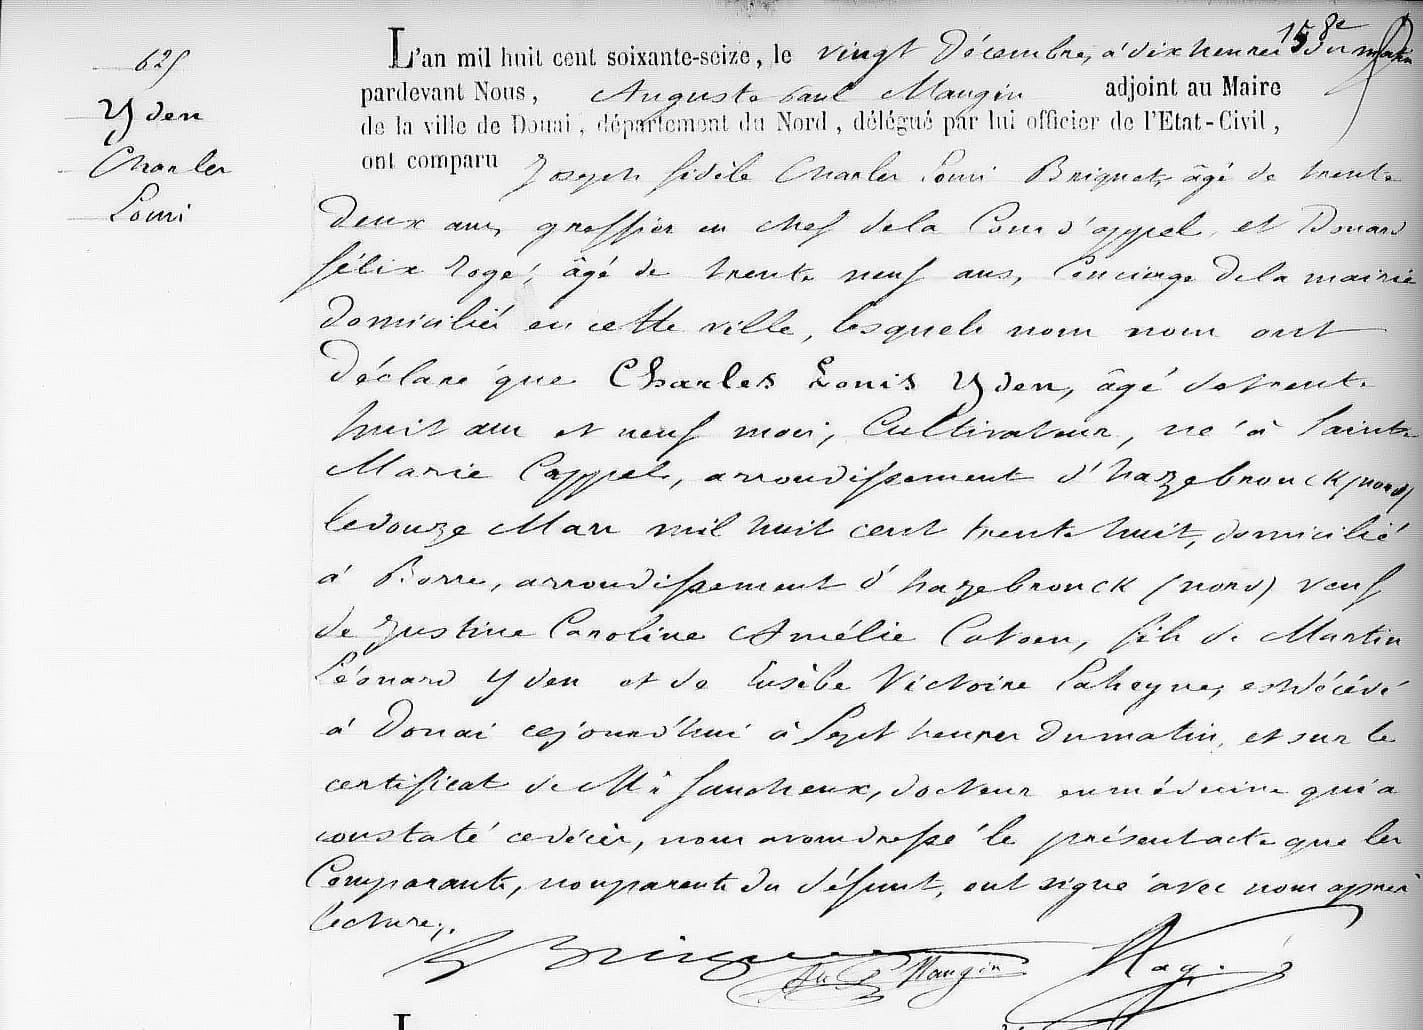 158e
625
Yden
Charles
Louis
L'an mil huit cent soixante-seize, le vingt Décembre, à dix heures du matin
pardevant Nous, Auguste Paul Maugin adjoint au Maire
de la ville de Douai, département du Nord, délégué par lui officier de l'Etat-Civil,
ont comparu Joseph fidèle Charles Louis Briquet, âgé de trente
deux ans, greffier en chef de la Cour d'appel, et Douard
félix Rogé, âgé de trente neuf ans, Concierge de la mairie
domiciliés en cette ville, lesquels nous ont
Déclaré que Charles Louis Yden, âgé de trente
huit ans et neuf mois, Cultivateur, né à Sainte
Marie Cappel, arrondissement d'hazebrouck (nord)
le douze Mars mil huit cent trente huit, domicilié
à Borre, arrondissement d'hazebrouck (nord) veuf
de Justine Caroline Amélie Catoen, fils de Martin
Léonard Yden et de Eusèbe Victoire Laheyne, est décédé
à Douai cejourd'hui à Sept heures du matin, et sur le
certificat de Mr faucheux, docteur en médecine qui a
constaté ce décès, nous avons dressé le présent acte que les
Comparants, non parents du défunt, ont signé avec nous après
lecture.
Briquet Maugin Rogé
L